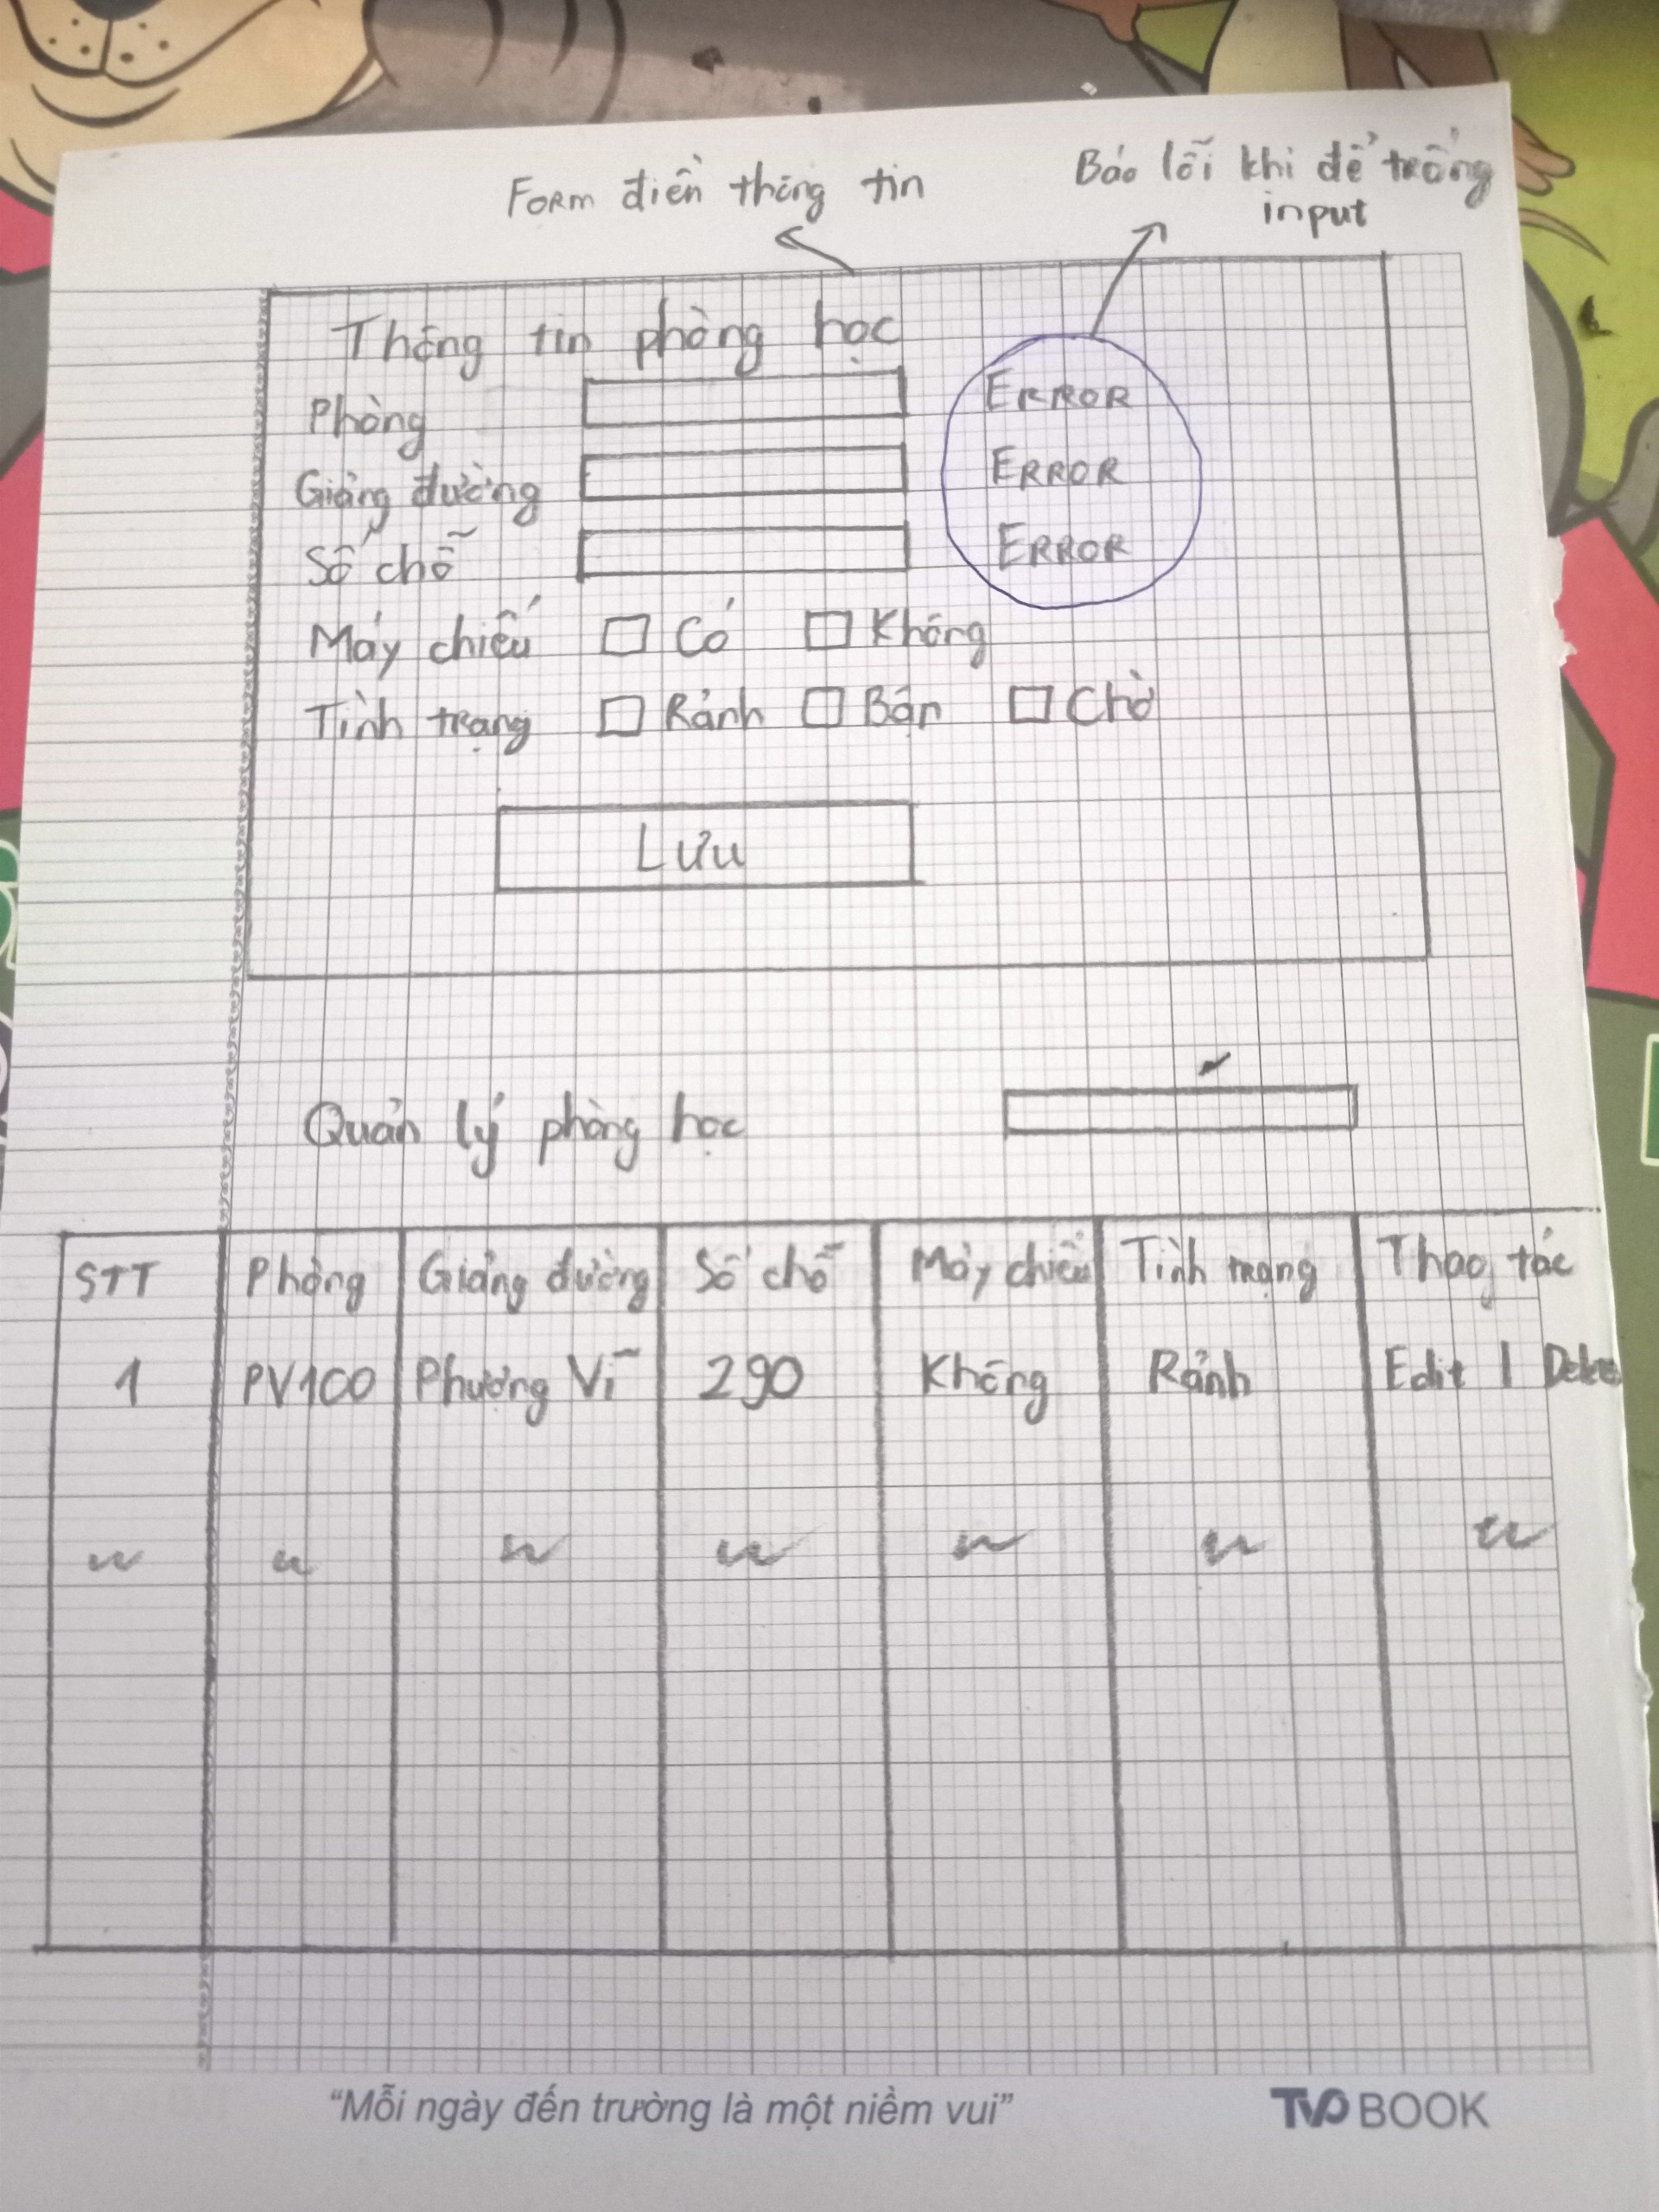 Form điền thông tin
Báo lỗi khi để trống
input
Thông tin phòng học
Phòng
ERROR
Giảng đường
ERROR
Số chỗ
ERROR
Máy chiếu Có Không
Tình trạng Rảnh Bận Chờ
Lưu
Quản lý phòng học
STT Phòng Giảng đường Số chỗ Máy chiếu Tình trạng Thao tác
1 PV100 Phượng Vĩ 290 Không Rảnh Edit |
“Mỗi ngày đến trường là một niềm vui”
TVP BOOK